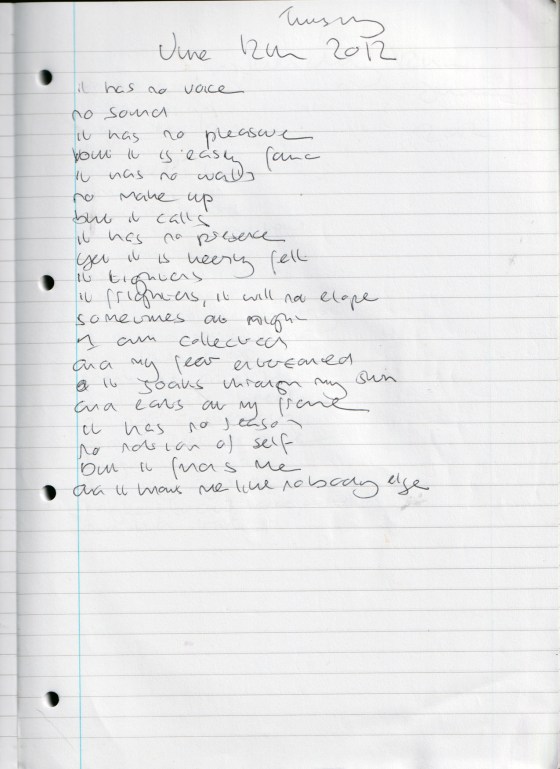 Thursday
June 12th 2012
it has no voice
no sound
it has no pleasure
but it is easily found
it has no walls
no make up
but it calls
it has no presence
yet it is heavily felt
it tightens
it frightens, it will not elope
sometimes at night
I am collected
and my fear entertained
it soaks through my skin
and eats at my frame
it has no reason
no notion of self
but it finds me
and it wants me like nobody else